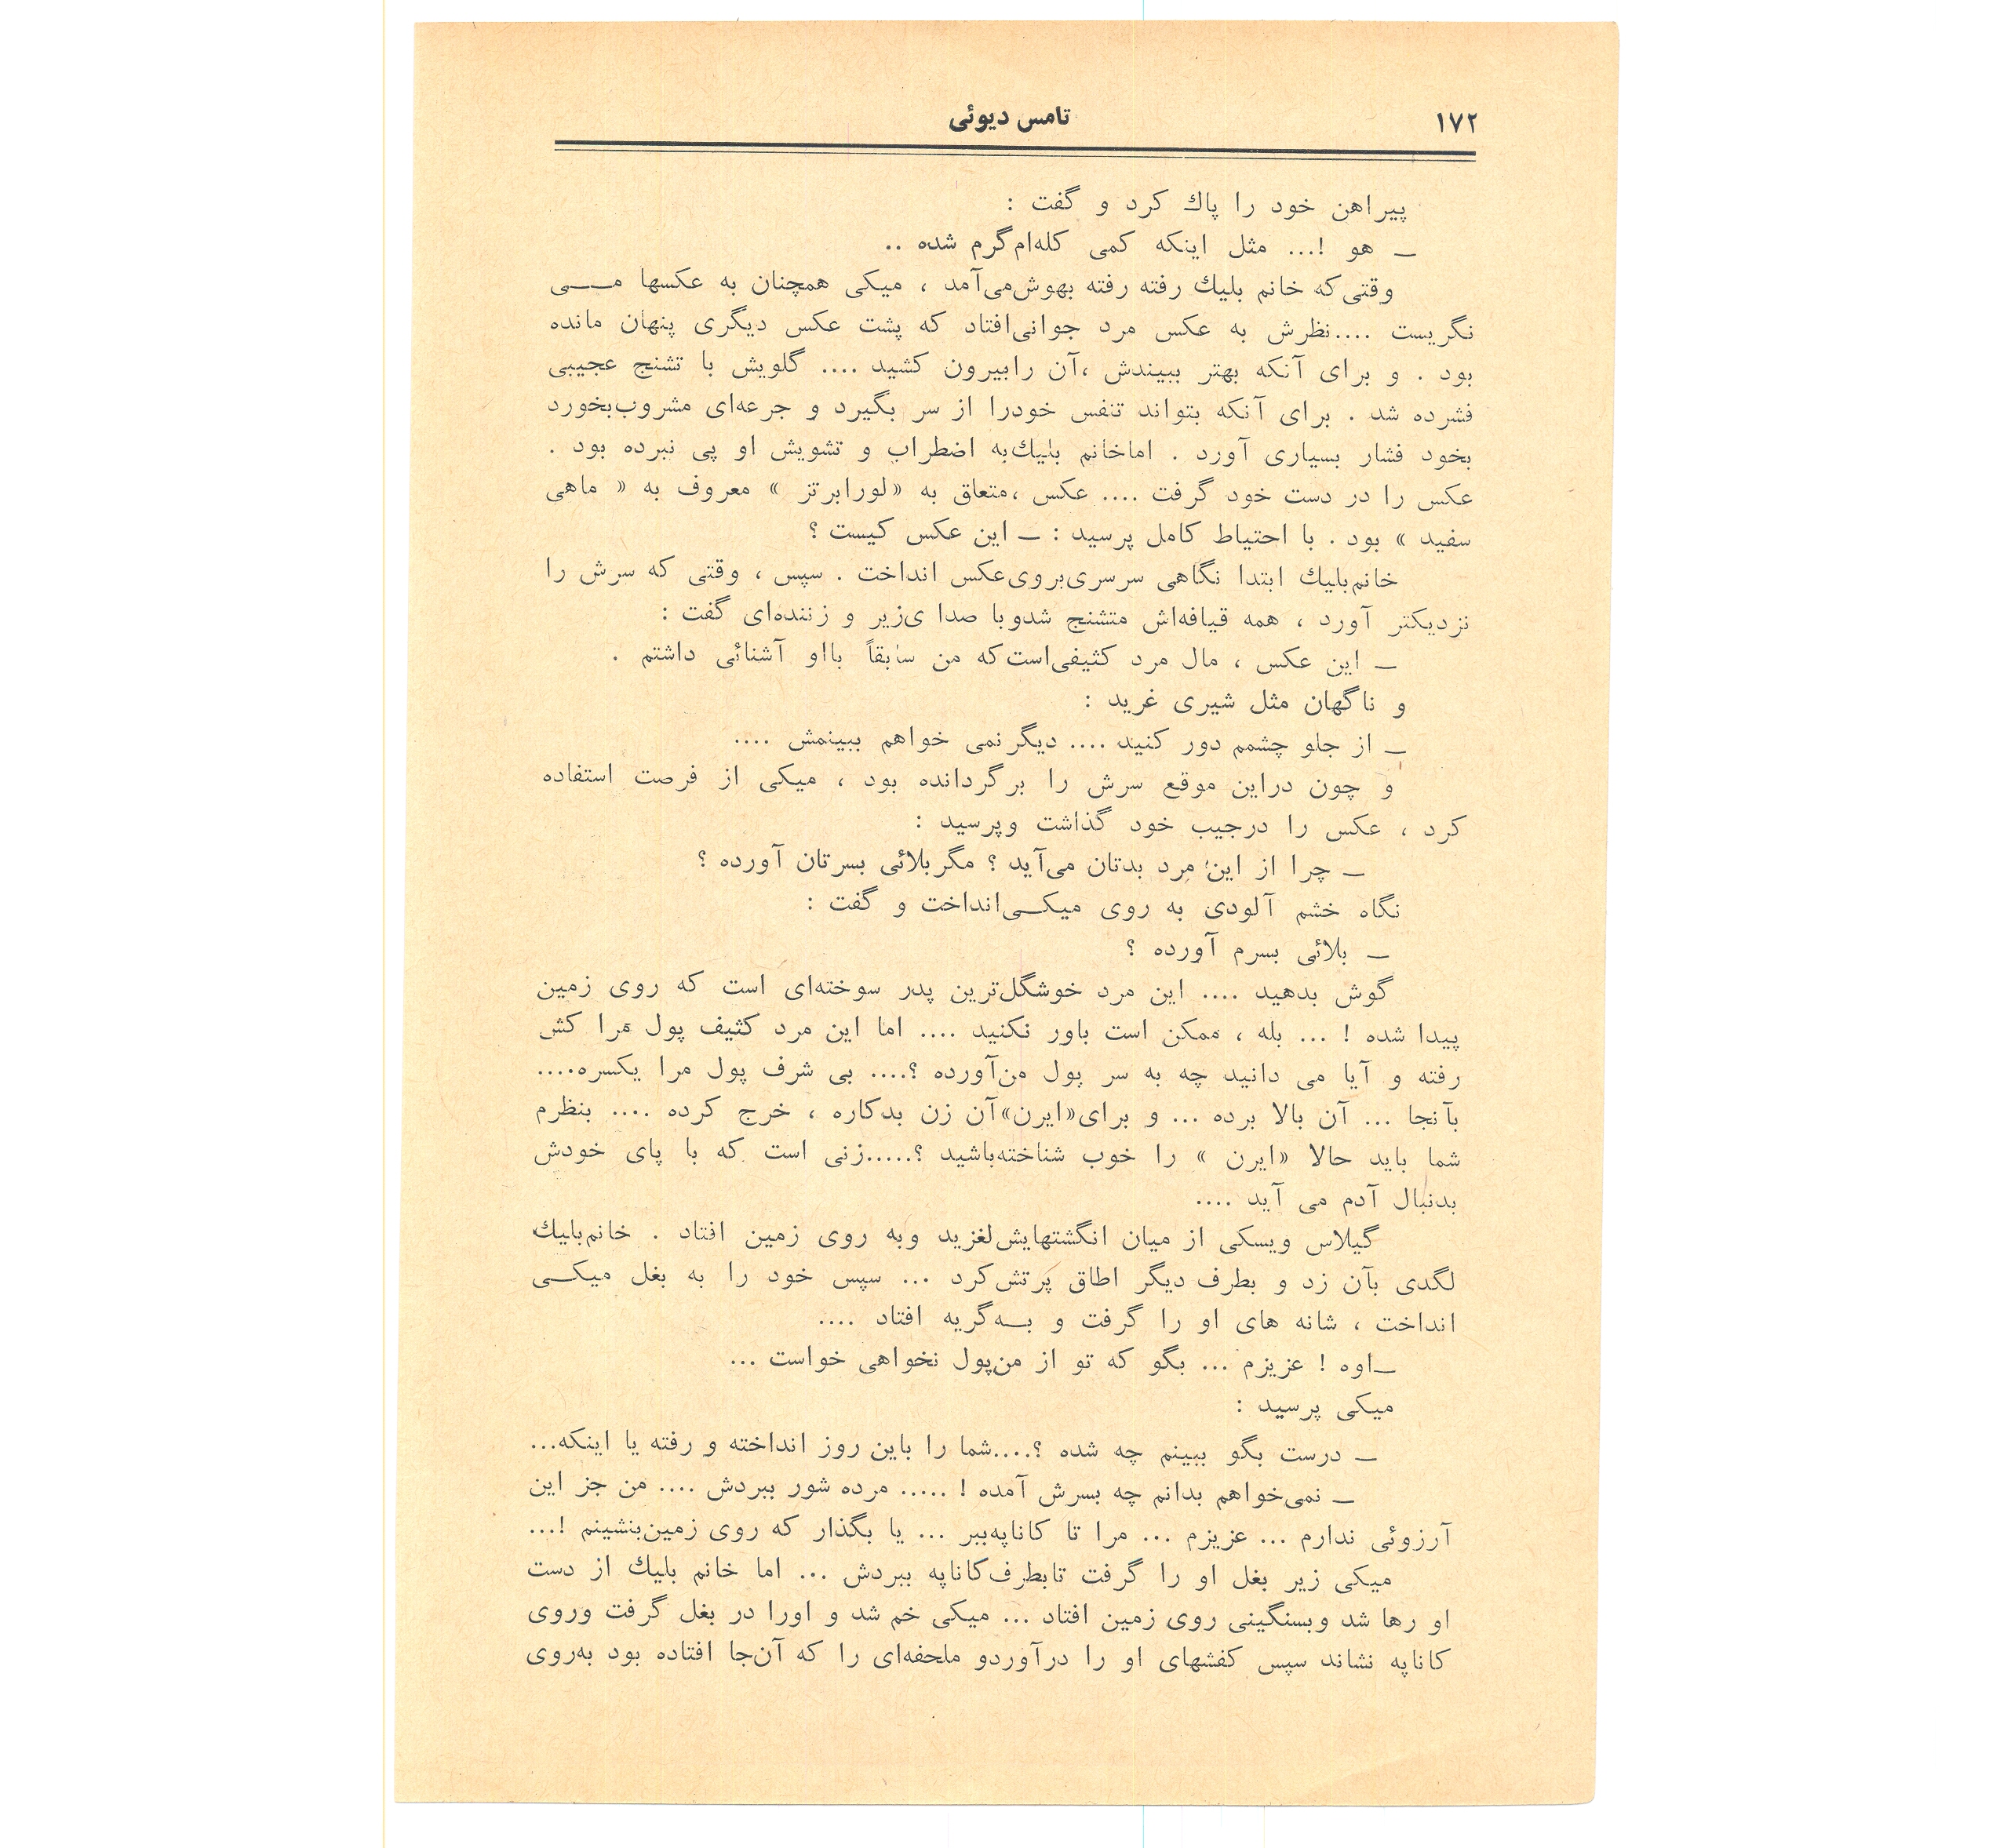 ۱۷۲
تامس دیوئی
پیراهن خود را پاك کرد و گفت :
ــ هو !... مثل اینکه کمی کله‌ام‌گرم شده ..
وقتی‌که خانم بلیك رفته رفته بهوش‌می‌آمد ، میکی همچنان به عکسها مـــی
نگریست ....نظرش به عکس مرد جوانی‌افتاد که پشت عکس دیگری پنهان مانده
بود . و برای آنکه بهتر ببیندش ،آن رابیرون کشید .... گلویش با تشنج عجیبی
فشرده شد . برای آنکه بتواند تنفس خودرا از سر بگیرد و جرعه‌ای مشروب‌بخورد
بخود فشار بسیاری آورد . اماخانم بلیك‌به اضطراب و تشویش او پی نبرده بود .
عکس را در دست خود گرفت .... عکس ،متعلق به «لورابرتز » معروف به « ماهی
سفید » بود . با احتیاط کامل پرسید : ــ این عکس کیست ؟
خانم‌بلیك ابتدا نگاهی سرسری‌بروی‌عکس انداخت . سپس ، وقتی که سرش را
نزدیکتر آورد ، همه قیافه‌اش متشنج شدوبا صدا ی‌زیر و زننده‌ای گفت :
ــ این عکس ، مال مرد کثیفی‌است‌که من سابقاً بااو آشنائی داشتم .
و ناگهان مثل شیری غرید :
ــ از جلو چشمم دور کنید .... دیگرنمی خواهم ببینمش ....
و چون دراین موقع سرش را برگردانده بود ، میکی از فرصت استفاده
کرد ، عکس را درجیب خود گذاشت وپرسید :
ــ چرا از این مرد بدتان می‌آید ؟ مگربلائی بسرتان آورده ؟
نگاه خشم آلودی به روی میکــی‌انداخت و گفت :
ــ بلائی بسرم آورده ؟
گوش بدهید .... این مرد خوشگل‌ترین پدر سوخته‌ای است که روی زمین
پیدا شده ! ... بله ، ممکن است باور نکنید .... اما این مرد کثیف پول مرا کش
رفته و آیا می دانید چه به سر پول من‌آورده ؟.... بی شرف پول مرا یکسره....
بآنجا ... آن بالا برده ... و برای«ایرن»آن زن بدکاره ، خرج کرده .... بنظرم
شما باید حالا «ایرن » را خوب شناخته‌باشید ؟.....زنی است که با پای خودش
بدنبال آدم می آید ....
گیلاس ویسکی از میان انگشتهایش‌لغزید وبه روی زمین افتاد . خانم‌بلیك
لگدی بآن زد و بطرف دیگر اطاق پرتش‌کرد ... سپس خود را به بغل میکــی
انداخت ، شانه های او را گرفت و بــه‌گریه افتاد ....
ــاوه ! عزیزم ... بگو که تو از من‌پول نخواهی خواست ...
میکی پرسید :
ــ درست بگو ببینم چه شده ؟....شما را باین روز انداخته و رفته یا اینکه...
ــ نمی‌خواهم بدانم چه بسرش آمده ! ..... مرده شور ببردش .... من جز این
آرزوئی ندارم ... عزیزم ... مرا تا کاناپه‌ببر ... یا بگذار که روی زمین‌بنشینم !...
میکی زیر بغل او را گرفت تابطرف‌کاناپه ببردش ... اما خانم بلیك از دست
او رها شد وبسنگینی روی زمین افتاد ... میکی خم شد و اورا در بغل گرفت وروی
کاناپه نشاند سپس کفشهای او را درآوردو ملحفه‌ای را که آن‌جا افتاده بود به‌روی